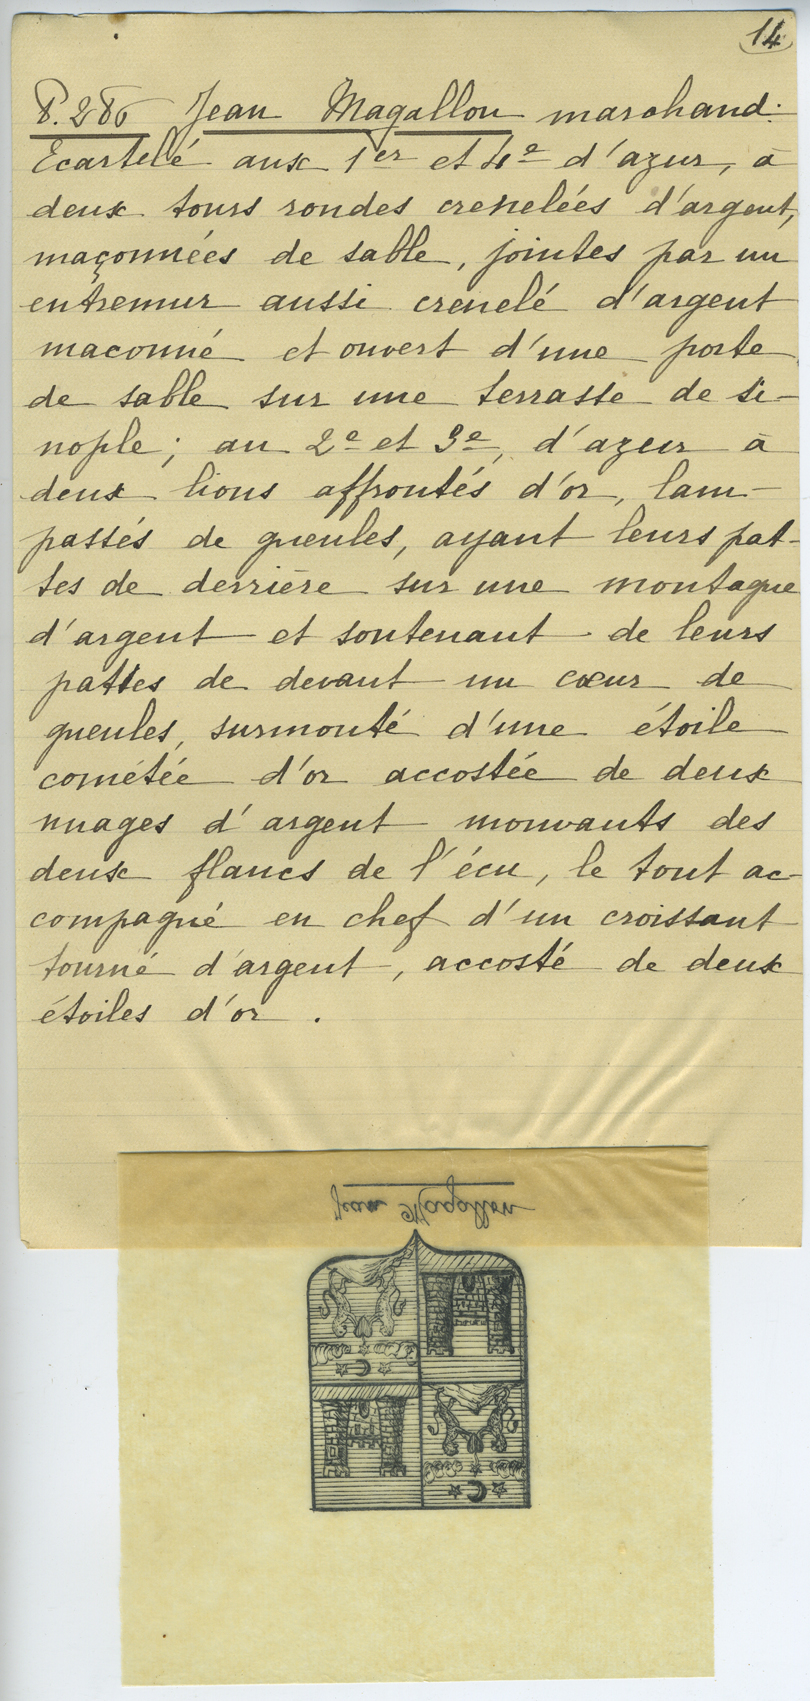 14
P. 286 Jean Magallon marchand.
Ecartelé aux 1er et 4e d'azur, à
deux tours rondes crenelées d'argent,
maçonnées de sable, jointes par un
entremur aussi crenelé d'argent
maconné et ouvert d'une porte
de sable sur une terrasse de si-
nople; au 2e et 3e, d'azur à
deux lions affrontés d'or, lam-
passés de gueules, ayant leurs pat-
tes de derrière sur une montagne
d'argent et soutenant de leurs
pattes de devant un cœur de
gueules, surmonté d'une étoile
cométée d'or accostée de deux
nuages d'argent mouvants des
deux flancs de l'écu, le tout ac-
compagné en chef d'un croissant
tourné d'argent, accosté de deux
étoiles d'or.
Jean Magallon